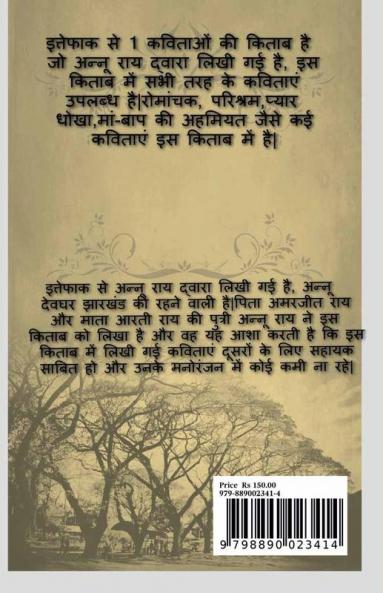 इत्तेफाक से 1 कविताओं की किताब है
जो अन्नू राय द्वारा लिखी गई है, इस
किताब में सभी तरह के कविताएं
उपलब्ध है|रोमांचक, परिश्रम,प्यार
धोखा,मां-बाप की अहमियत जैसे कई
कविताएं इस किताब में है|
इत्तेफाक से अन्नू राय द्वारा लिखी गई है, अन्नू
देवघर झारखंड की रहने वाली है|पिता अमरजीत राय
और माता आरती राय की पुत्री अन्नू राय ने इस
किताब को लिखा है और वह यह आशा करती है कि इस
किताब में लिखी गई कविताएं दूसरों के लिए सहायक
साबित हो और उनके मनोरंजन में कोई कमी ना रहे|
Price Rs 150.00
979-889002341-4
9 798890 023414